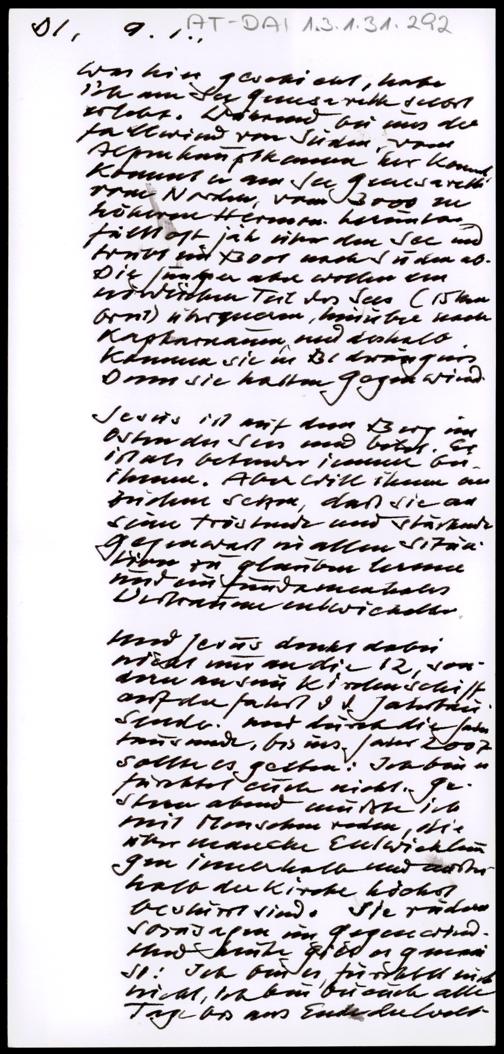 DI, 9.1.. AT-DAI 1.3.1.31.292
Was hier geschieht, habe
ich am See Genesareth selbst
erlebt. Während bei uns der
Fallwind von Süden, vom
Alpenhauptkamm her kommt,
kommt er am See Genesareth
vom Norden, vom 3000 m
höheren Hermon herunter
fällt oft jäh über den See und
treibt ein Boot nach Süden ab.
Die Jünger aber wollen den
nördlichen Teil des Sees (15 km
breit) überqueren, hinüber nach
Kapharnaum, und deshalb
kommen sie in Bedrängnis
Denn sie hatten Gegenwind.
Jesus ist auf dem Berg im
Osten des Sees und betet. Er
ist als betender immer bei
ihnen. Aber will ihnen an
zuchen schon, daß sie an
seine tröstende und stärkende
Gegenwart in allen Situa-
tion zu glauben lernen
und ein fundamentales
Vertrauen entwickeln.
Und Jesus denkt dabei
nicht nur an die 12, son-
dern an sein Kirchenschiff
auf der Fahrt d. d. Jahrtau-
sende. Und durch die Jahr
tausende, bis ins Jahr 2007
sollte es gelten: Ich bin es
fürchtet euch nicht. Ge-
stern abend mußte ich
mit Menschen reden, die
über manche Entwicklun
gen innerhalb und außer
halb der Kirche höchst
bestürzt sind. Sie rudern
sozusagen im Gegenwind.
Und heute gibt er gemein
st: Ich bin es, fürchtet euch
nicht, ich bin bei euch alle
Tage bis ans Ende der Welt